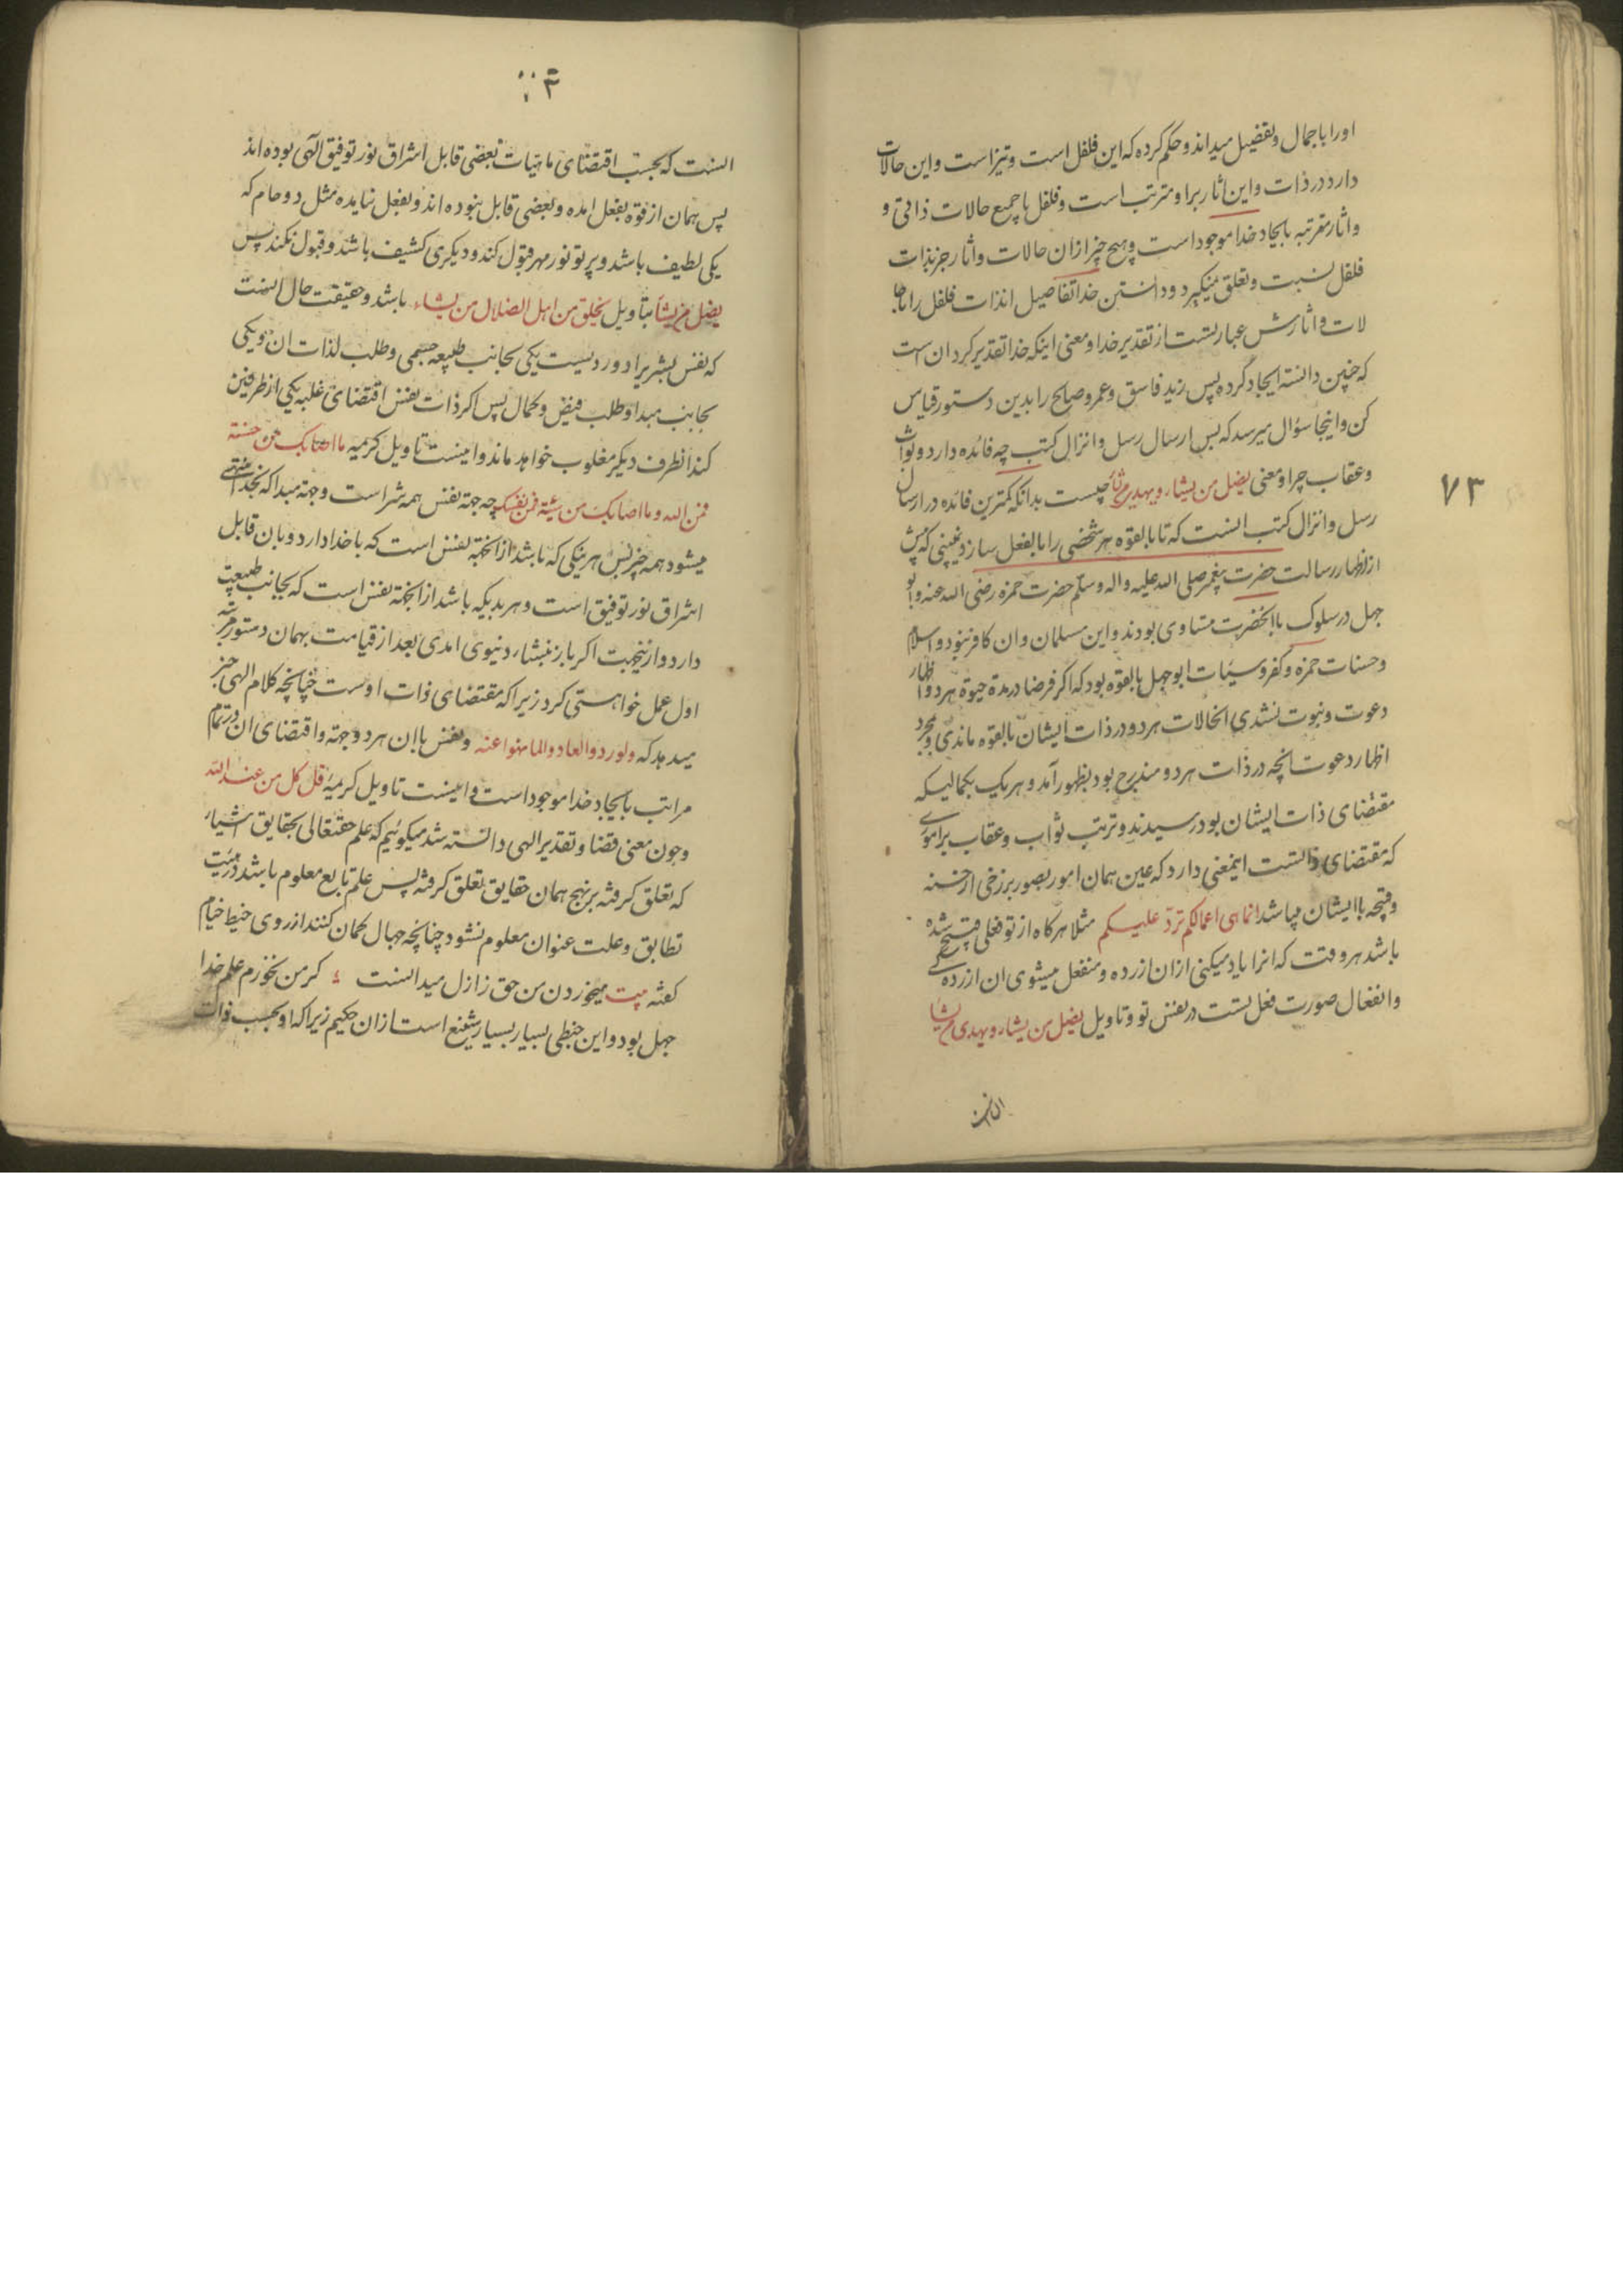 اورا باجمال وتفضیل میداند و حکم کرده که این فلفل است و تیز است و این حالات
دارد در ذات و این اثار برا و مترتب است و فلفل باجمیع حالات ذاتی و
و اثار مترتبه بایجاد خدا موجود است و هیچ چیز ازان حالات و اثار جز بذات
فلفل نسبت و تعلق نمیکیرد و دانستن خدا تفاصیل انذات فلفل را باحا
لات و اثارش عبارتست از تقدیر خدا و معنی اینکه خدا تقدیر کرد ان است
که چنین دانسته ایجاد کرده پس زید فاسق و عمرو صالح را بدین دستور قیاس
کن و اینجا سؤال میرسد که پس ارسال رسل و انزال کتب چه فائده دارد و ثواب
و عقاب چرا و معنی یضل من یشاء و یهدی من یشاء چیست بدانکه کمترین فائده در ارسال
رسل و انزال کتب انست که تا بالقوه هر شخصی را بالفعل سازد نمیبینی که پیش
از اظهار رسالت حضرت پیغمبر صلی الله علیه و اله و سلم حضرت حمزه رضی الله عنه و ابو
جهل در سلوک باانحضرت مساوی بودند و این مسلمان و ان کافر نبود و اسلام
و حسنات حمزه و کفر و سیئات ابو جهل بالقوه بود که اکر فرضا در مدة حیوة هر دو اظهار
دعوت و نبوت نشدی انحالات هر دو در ذات ایشان بالقوه ماندی و بمجرد
اظهار دعوت انچه در ذات هر دو مندرج بود بظهور آمد و هر یک بکمالیکه
مقتضای ذات ایشان بود رسیدند و ترتب ثواب و عقاب بر اموری
که مقتضای ذاتست اینمعنی دارد که عین همان امور بصور برزخی از حسنه
و قبیحه با ایشان میباشد انما هی اعمالکم ترد علیکم مثلا هر کاه از تو فعلی قبیح شده
باشد هر وقت که انرا یاد میکنی ازان ازرده و منفعل میشوی ان ازرده کی
و انفعال صورت فعل تست در نفس تو و تاویل یضل من یشاء و یهدی من یشاء
انست
۷۳
انست که بحسب اقتضای ماهیات بعضی قابل اشراق نور توفیق الهی بوده اند
پس همان از قوه بفعل امده و بعضی قابل نبوده اند و بفعل نیامده مثل دو جام که
یکی لطیف باشد و پرتو نور مهر قبول کند و دیکری کثیف باشد و قبول نکند پس
یضل من یشأ بتأویل یخلق من اهل الضلال من یشاء باشد و حقیقت حال انست
که نفس بشریرا دو رویست یکی بجانب طبیعه جسمی و طلب لذات ان و یکی
بجانب مبدا و طلب فیض و کمال پس اکر ذات نفس اقتضای غلبه یکی از طرفین
کند انطرف دیکر مغلوب خواهد ماند و اینست تاویل کریمه ما اصابک من حسنة
فمن الله و ما اصابک من سیئة فمن نفسک چه جهة نفس همه شر است و جهة مبدا که بخدا منتهی
میشود همه خیر پس هر نیکی که باشد از انجهة نفس است که با خدا دارد و بان قابل
اشراق نور توفیق است و هر بدیکه باشد از انجهة نفس است که بجانب طبیعت
دارد و ازینجهت اکر باز بنشاء دنیوی امدی بعد از قیامت بهمان دستور مرتبه
اول عمل خواهستی کرد زیرا که مقتضای ذات اوست چنانچه کلام الهی خبر
میدهد که ولو ردوا لعادوا لما نهوا عنه و نفس باان هر دو جهة و اقتضای ان در تمام
مراتب بایجاد خدا موجود است و اینست تاویل کریمه قل کل من عند الله
وچون معنی قضا و تقدیر الهی دانسته شد میکوئیم که علم حقتعالی بحقایق اشیاء
که تعلق کرفته بر نهج همان حقایق تعلق کرفته پس علم تابع معلوم باشد در هیئت
تطابق و علت عنوان معلوم نشود چنانچه جهال کمان کنند از روی خبط خیام
کفته بیت میخوردن من حق ز ازل میدانست کر من نخورم علم خدا
جهل بود و این خبطی بسیار بسیار شنیع است ازان حکیم زیرا که او بحسب ذات